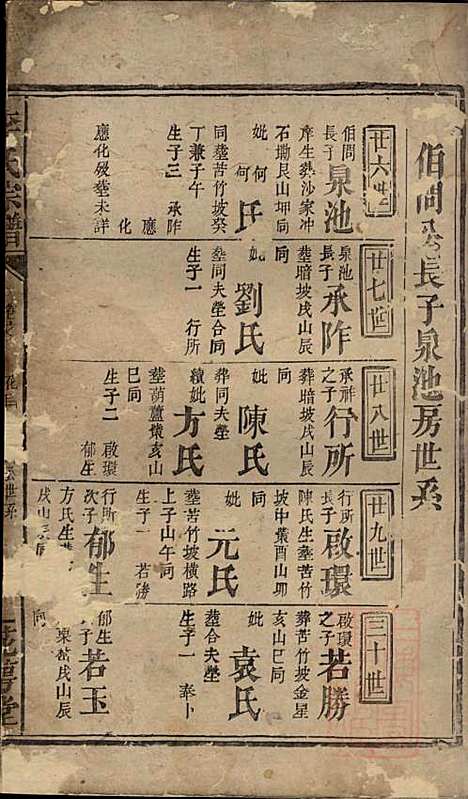 伯問公長子泉池房世系
廿六世
伯問長子泉池
庠生塟沙家冲
石墈艮山坤同
妣何氏
同塟苦竹坡癸
丁兼子午
生子三 承阼
應
化
應化歿塟未詳
廿七世
泉池長子承阼
塟暗坡戌山辰
同
妣劉氏
塟同夫塋合同
生子一 行所
廿八世
承祚之子行所
葬暗坡戌山辰
同
妣陳氏
葬同夫塋
續妣方氏
塟葫蘆
亥山
巳同
生子二 啟環
郁生
廿九世
行所長子啟環
陳氏生塟苦竹
坡中
酉山卯
同
妣元氏
塟苦竹坡橫路
上子山午同
生子一 若勝
行所次子郁生
方氏生
戌山
同
三十世
啟環之子若勝
葬苦竹坡金星
亥山巳同
妣袁氏
塟合夫塋
生子一 奉卜
郁生子若玉
戌山辰
氏宗譜
世系
堂